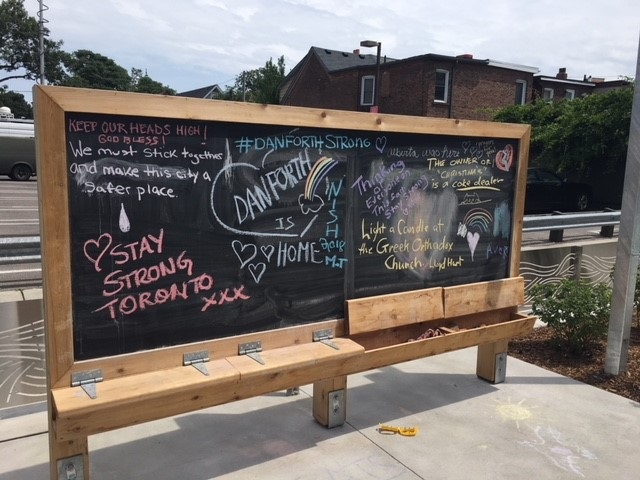 KEEP OUR HEADS HIGH!
GOD BLESS!
We must stick together
and make this city a
safer place.
STAY
STRONG
TORONTO
xxx
#DANFORTHSTRONG
DANFORTH
IS
HOME
NISH
MJ
Thinking
Everyone
THE OWNER OF
"CHRISTINA'S"
is a coke dealer
Light a Candle at
the Greek Orthodox
Church.